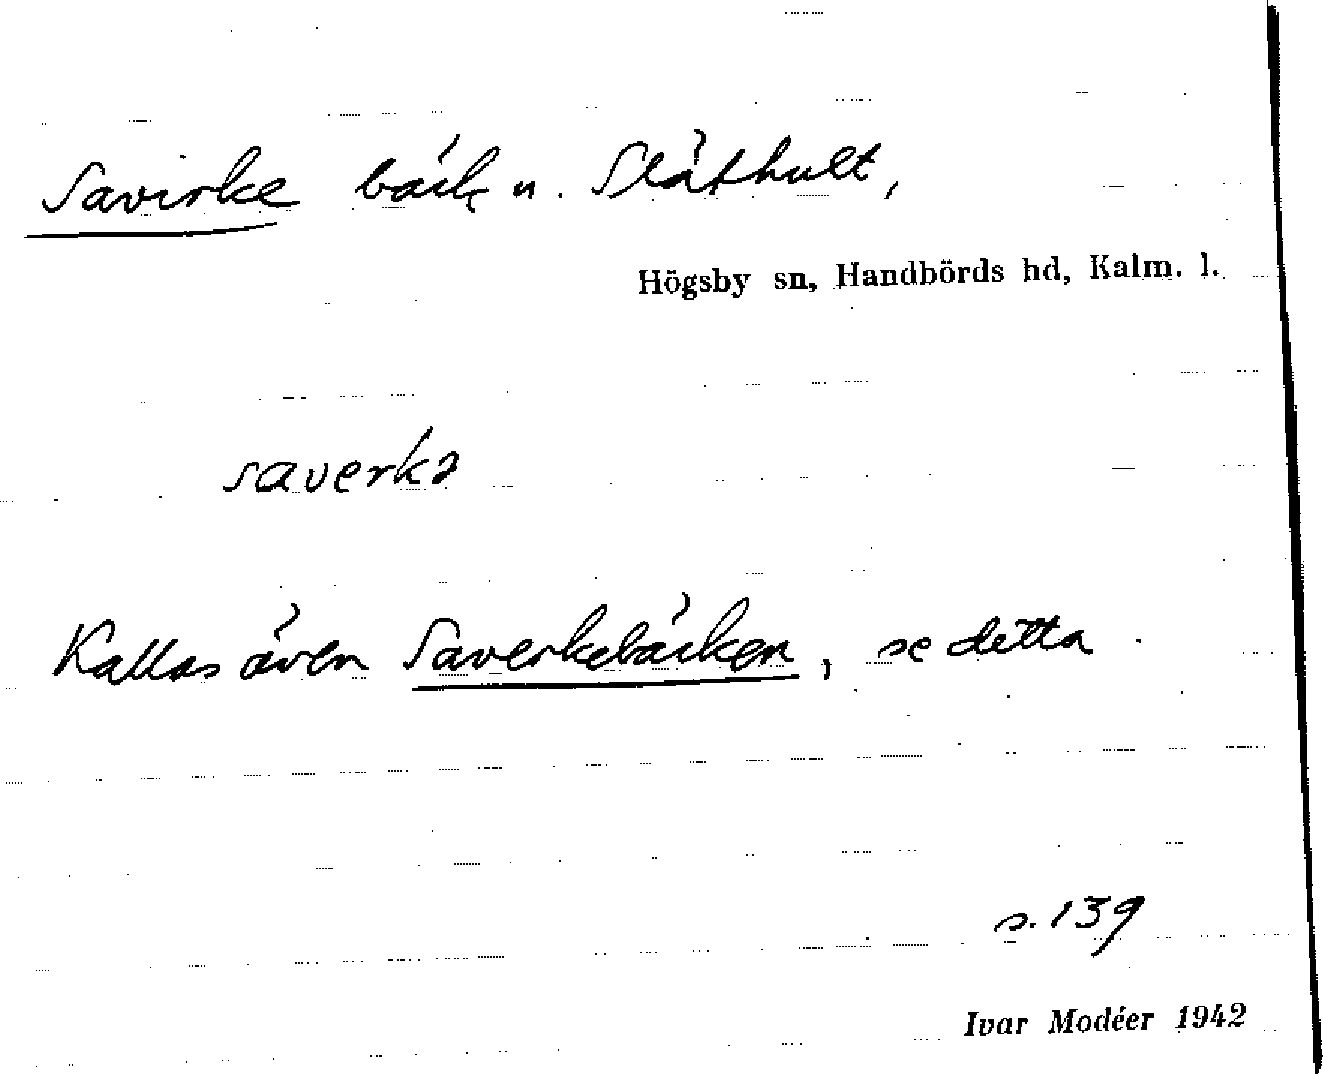 Savirke bäck u. Slåthult,
Högsby sn, Handbörds hd, Kalm. l.
saverkə
Kallas även Saverkebäcken, se detta.
s. 139
Ivar Modéer 1942